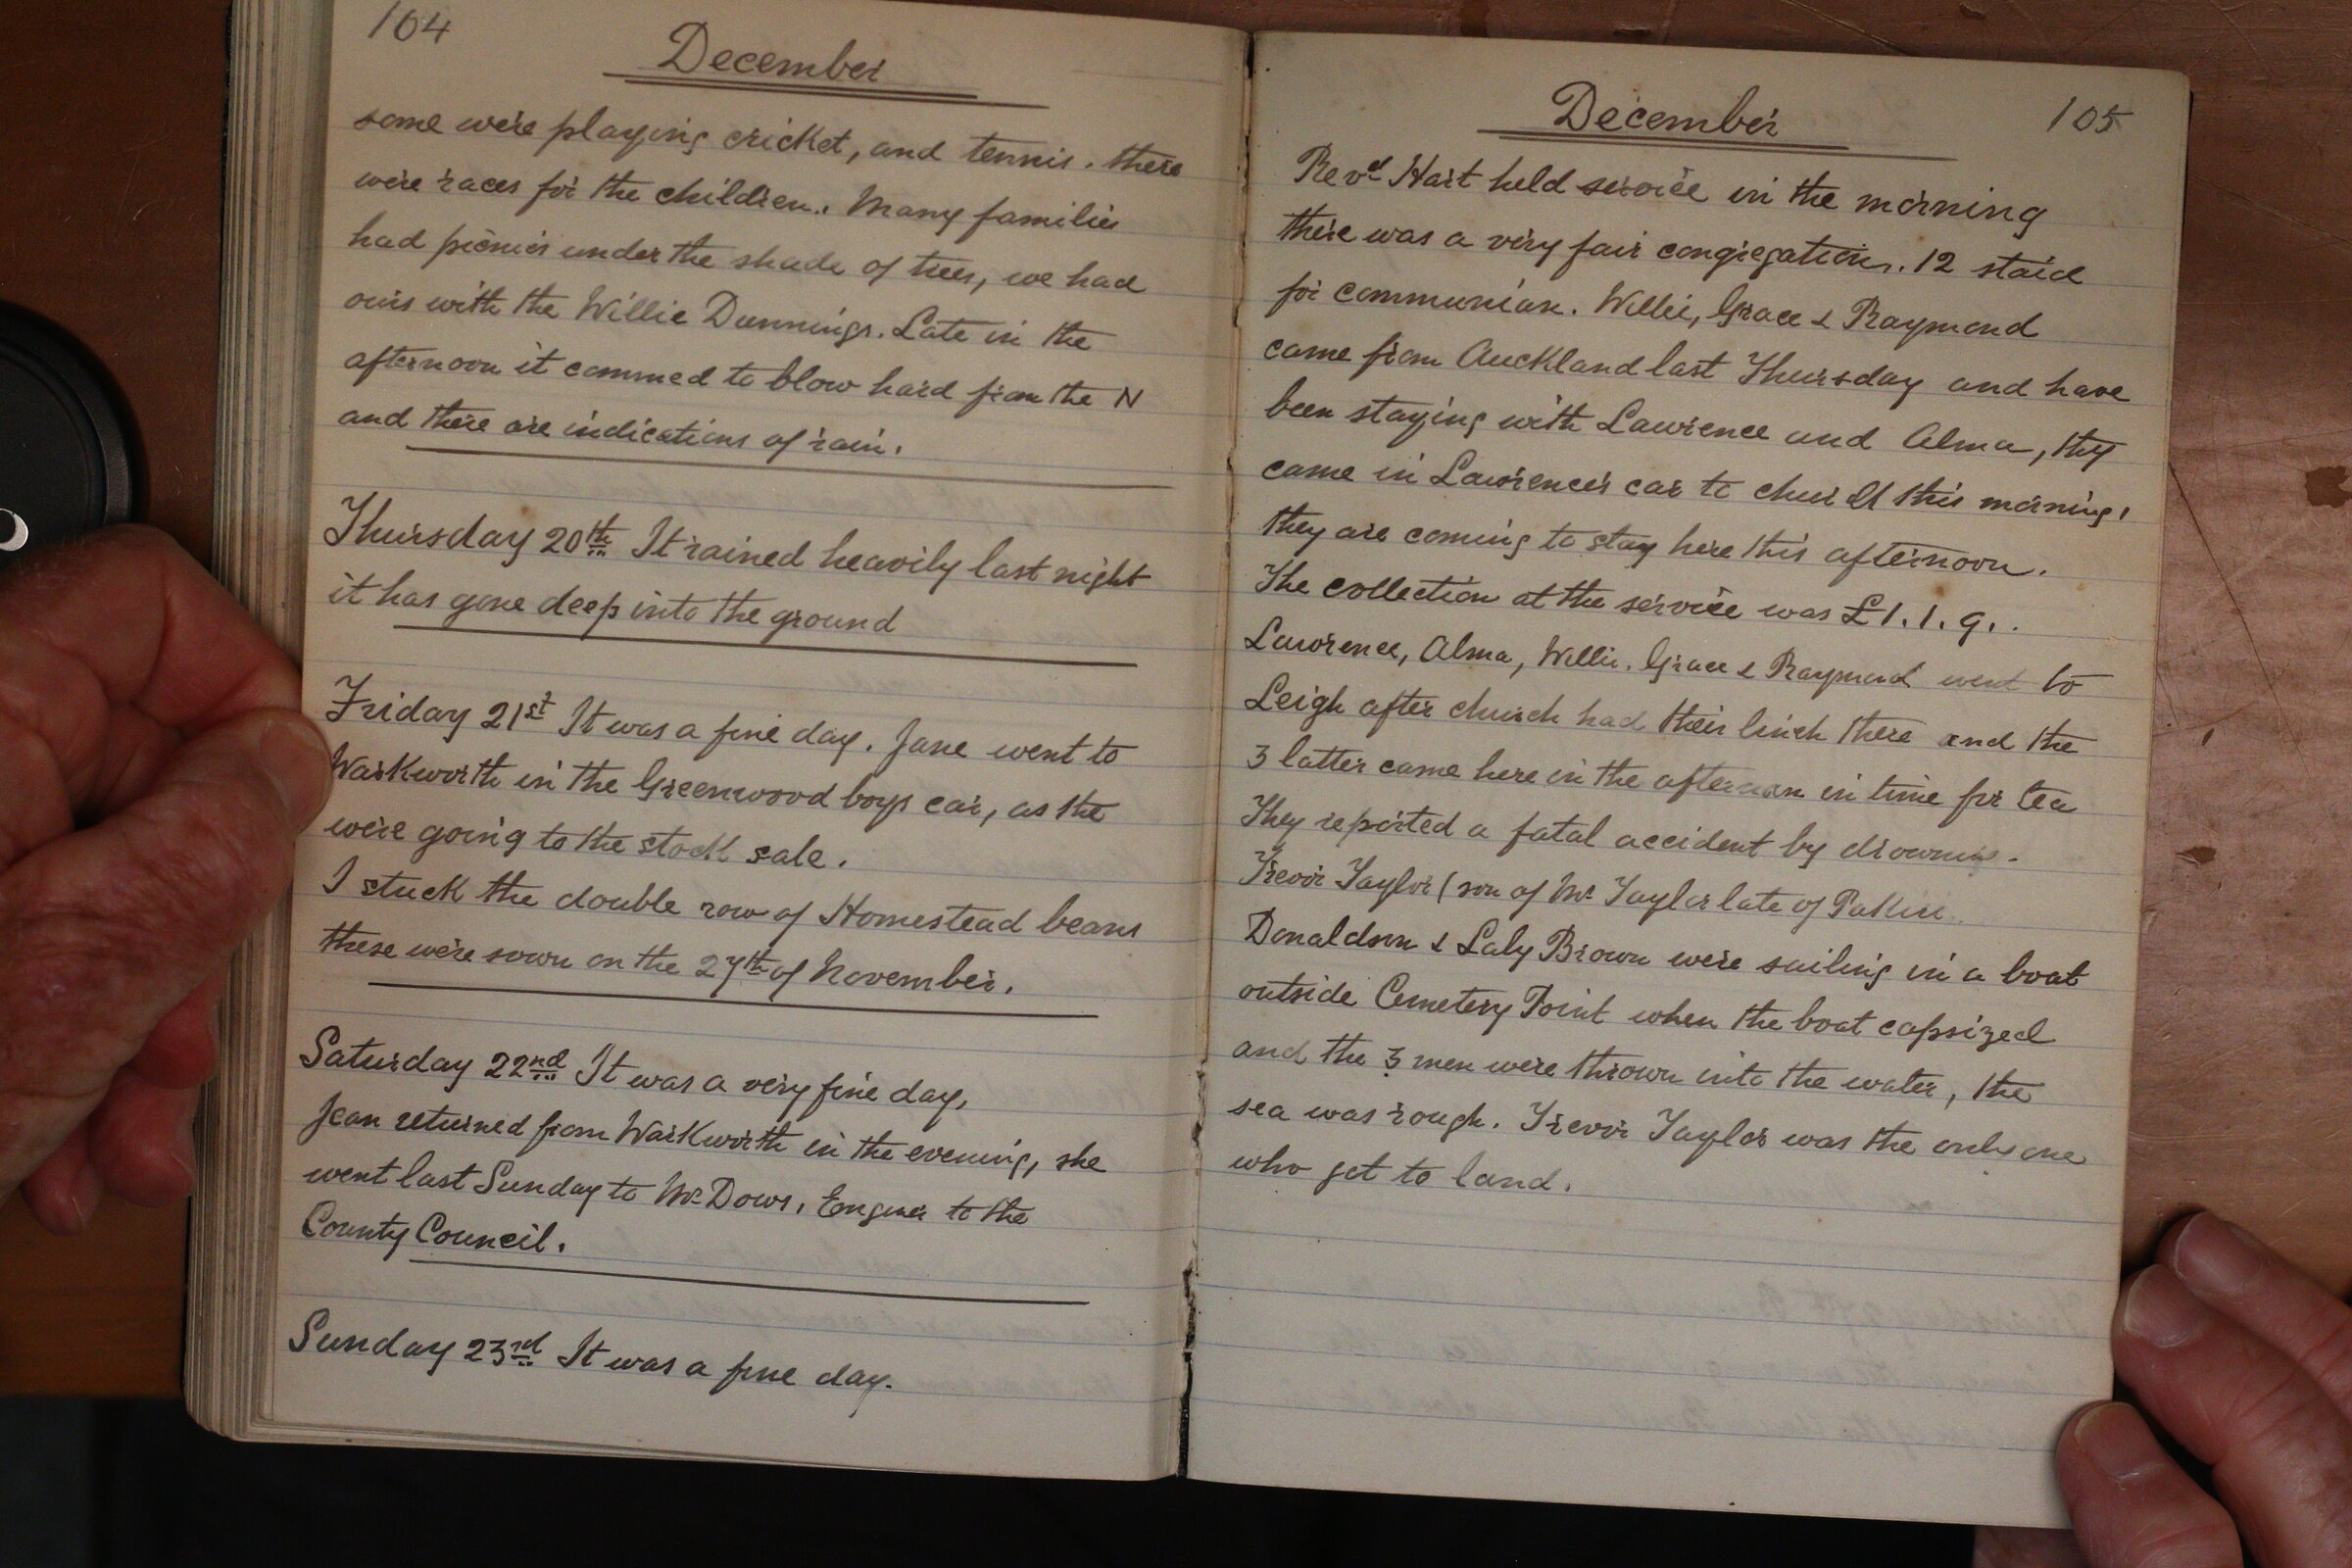 164
December
some were playing cricket, and tennis. there
were races for the children. Many families
had picnics under the shade of trees, we had
ours with the Willie Dunnings. Late in the
afternoon it commed to blow hard from the N
and there are indications of rain.
Thursday 20th It rained heavily last night
it has gone deep into the ground
Friday 21st It was a fine day. Jane went to
Warkworth in the Greenwood boys car, as the
were going to the stock sale.
I stuck the double row of Homestead beans
these were sown on the 27th of November.
Saturday 22nd It was a very fine day,
Jean returned from Warkworth in the evening, she
went last Sunday to Mr Dows, to the
County Council.
Sunday 23rd It was a fine day.
December
105
Revd Hart held service in the morning
there was a very fair congregation. 12 staid
for communion. Willie, Grace & Raymond
came from Auckland last Thursday and have
been staying with Lawrence and Alma, they
came in Lawrence's car to church this morning,
they are coming to stay here this afternoon.
The collection at the service was £1.1.9.
Lawrence, Alma, Willie, Grace & Raymond went to
Leigh after church had their lunch there and the
3 latter came here in the afternoon in time for tea
They reported a fatal accident by drowning.
Trevor Taylor (son of Mr Taylor late of Pakiri
Donaldson & Laly Brown were sailing in a boat
outside Cemetery Point when the boat capsized
and the 3 men were thrown into the water, the
sea was rough. Trevor Taylor was the only one
who got to land.